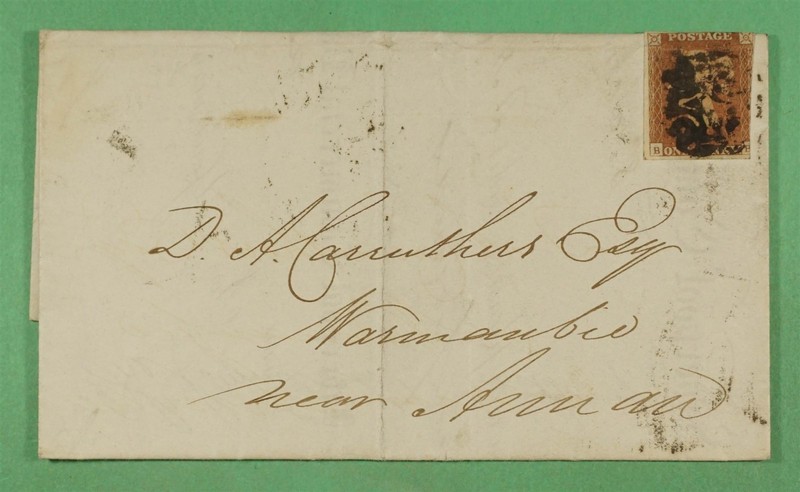 POSTAGE
D. A. Carruthers Esq
Warmanbie
near Annan